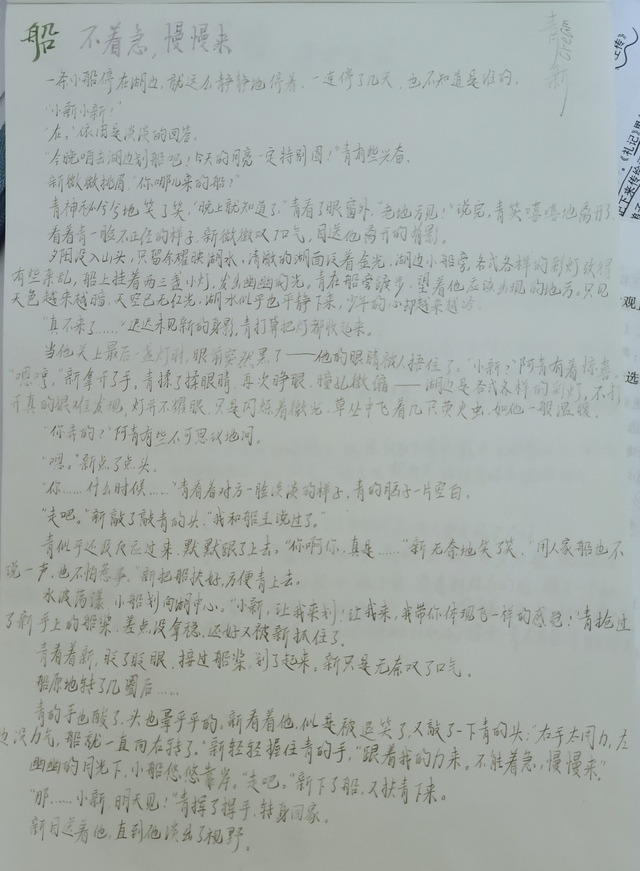 船 不着急,慢慢来
青
新
一条小船停在湖边,就这么静静地停着,一连停了几天,也不知道是谁的。
“小新小新!”
“在。”依旧是淡淡的回答。
“今晚咱去湖边划船吧!今天的月亮一定特别圆!”青有些兴奋。
新微微挑眉,“你哪儿来的船?”
青神秘兮兮地笑了笑,“晚上就知道了,”青看了眼窗外,“老地方见!”说完,青笑嘻嘻地离开了。
看着青一脸不正经的样子,新微微叹了口气,目送他离开的背影。
夕阳没入山头,只留余耀映湖水,清澈的湖面泛着金光,湖边小船旁,各式各样的彩灯
有些杂乱,船上挂着两三盏小灯,发出幽幽的光,青在船旁踱步,望着他应该出现的地方,只见
天色越来越暗,天空已无红光,湖水似乎也平静下来,少年的心却越来越冷。
“真不来了……”迟迟未见新的身影,青打算把灯都收起来。
当他关上最后一盏灯时,眼前突然黑了——他的眼睛被人捂住了。“小新?”阿青有着惊喜。
“嗯哼。”新拿开了手,青揉了揉眼睛,再次睁眼,瞳孔微缩——湖边是各式各样的彩灯,不打
开真的很难发现,灯并不耀眼,只是闪烁着微光,草丛中飞着几只萤火虫,如他一般温暖。
“你弄的?”阿青有些不可思议地问。
“嗯。”新点了点头。
“你……什么时候……”青看着对方一脸淡淡的样子,青的脑子一片空白。
“走吧。”新敲了敲青的头,“我和船主说过了。”
青似乎还没反应过来,默默跟了上去。“你啊你,真是……”新无奈地笑了笑,“用人家船也不
说一声,也不怕惹事。”新把船扶好,方便青上去。
水波荡漾,小船划向湖中心。“小新,让我来划!让我来,我带你体现飞一样的感觉!”青抢过
了新手上的船桨,差点没拿稳,还好又被新抓住了。
青看着新,眨了眨眼,接过船桨,划了起来。新只是无奈叹了口气。
船原地转了几圈后……
青的手也酸了,头也晕乎乎的,新看着他,似是被逗笑了,又敲了一下青的头:“右手太用力,左
边没力气,船就一直向左转了。”新轻轻握住青的手,“跟着我的力来。不能着急,慢慢来。”
幽幽的月光下,小船悠悠靠岸。“走吧。”新下了船,又扶青下来。
“那……小新,明天见!”青挥了挥手,转身回家。
新目送着他,直到他淡出了视野。